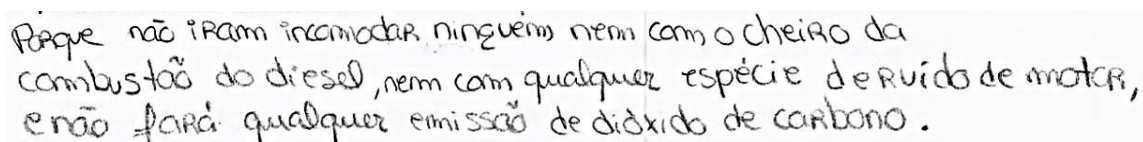 Porque não iram incomodar ninguém nem com o cheiro da
combustão do diesel, nem com qualquer espécie de ruído de motor,
e não fará qualquer emissão de dióxido de carbono.